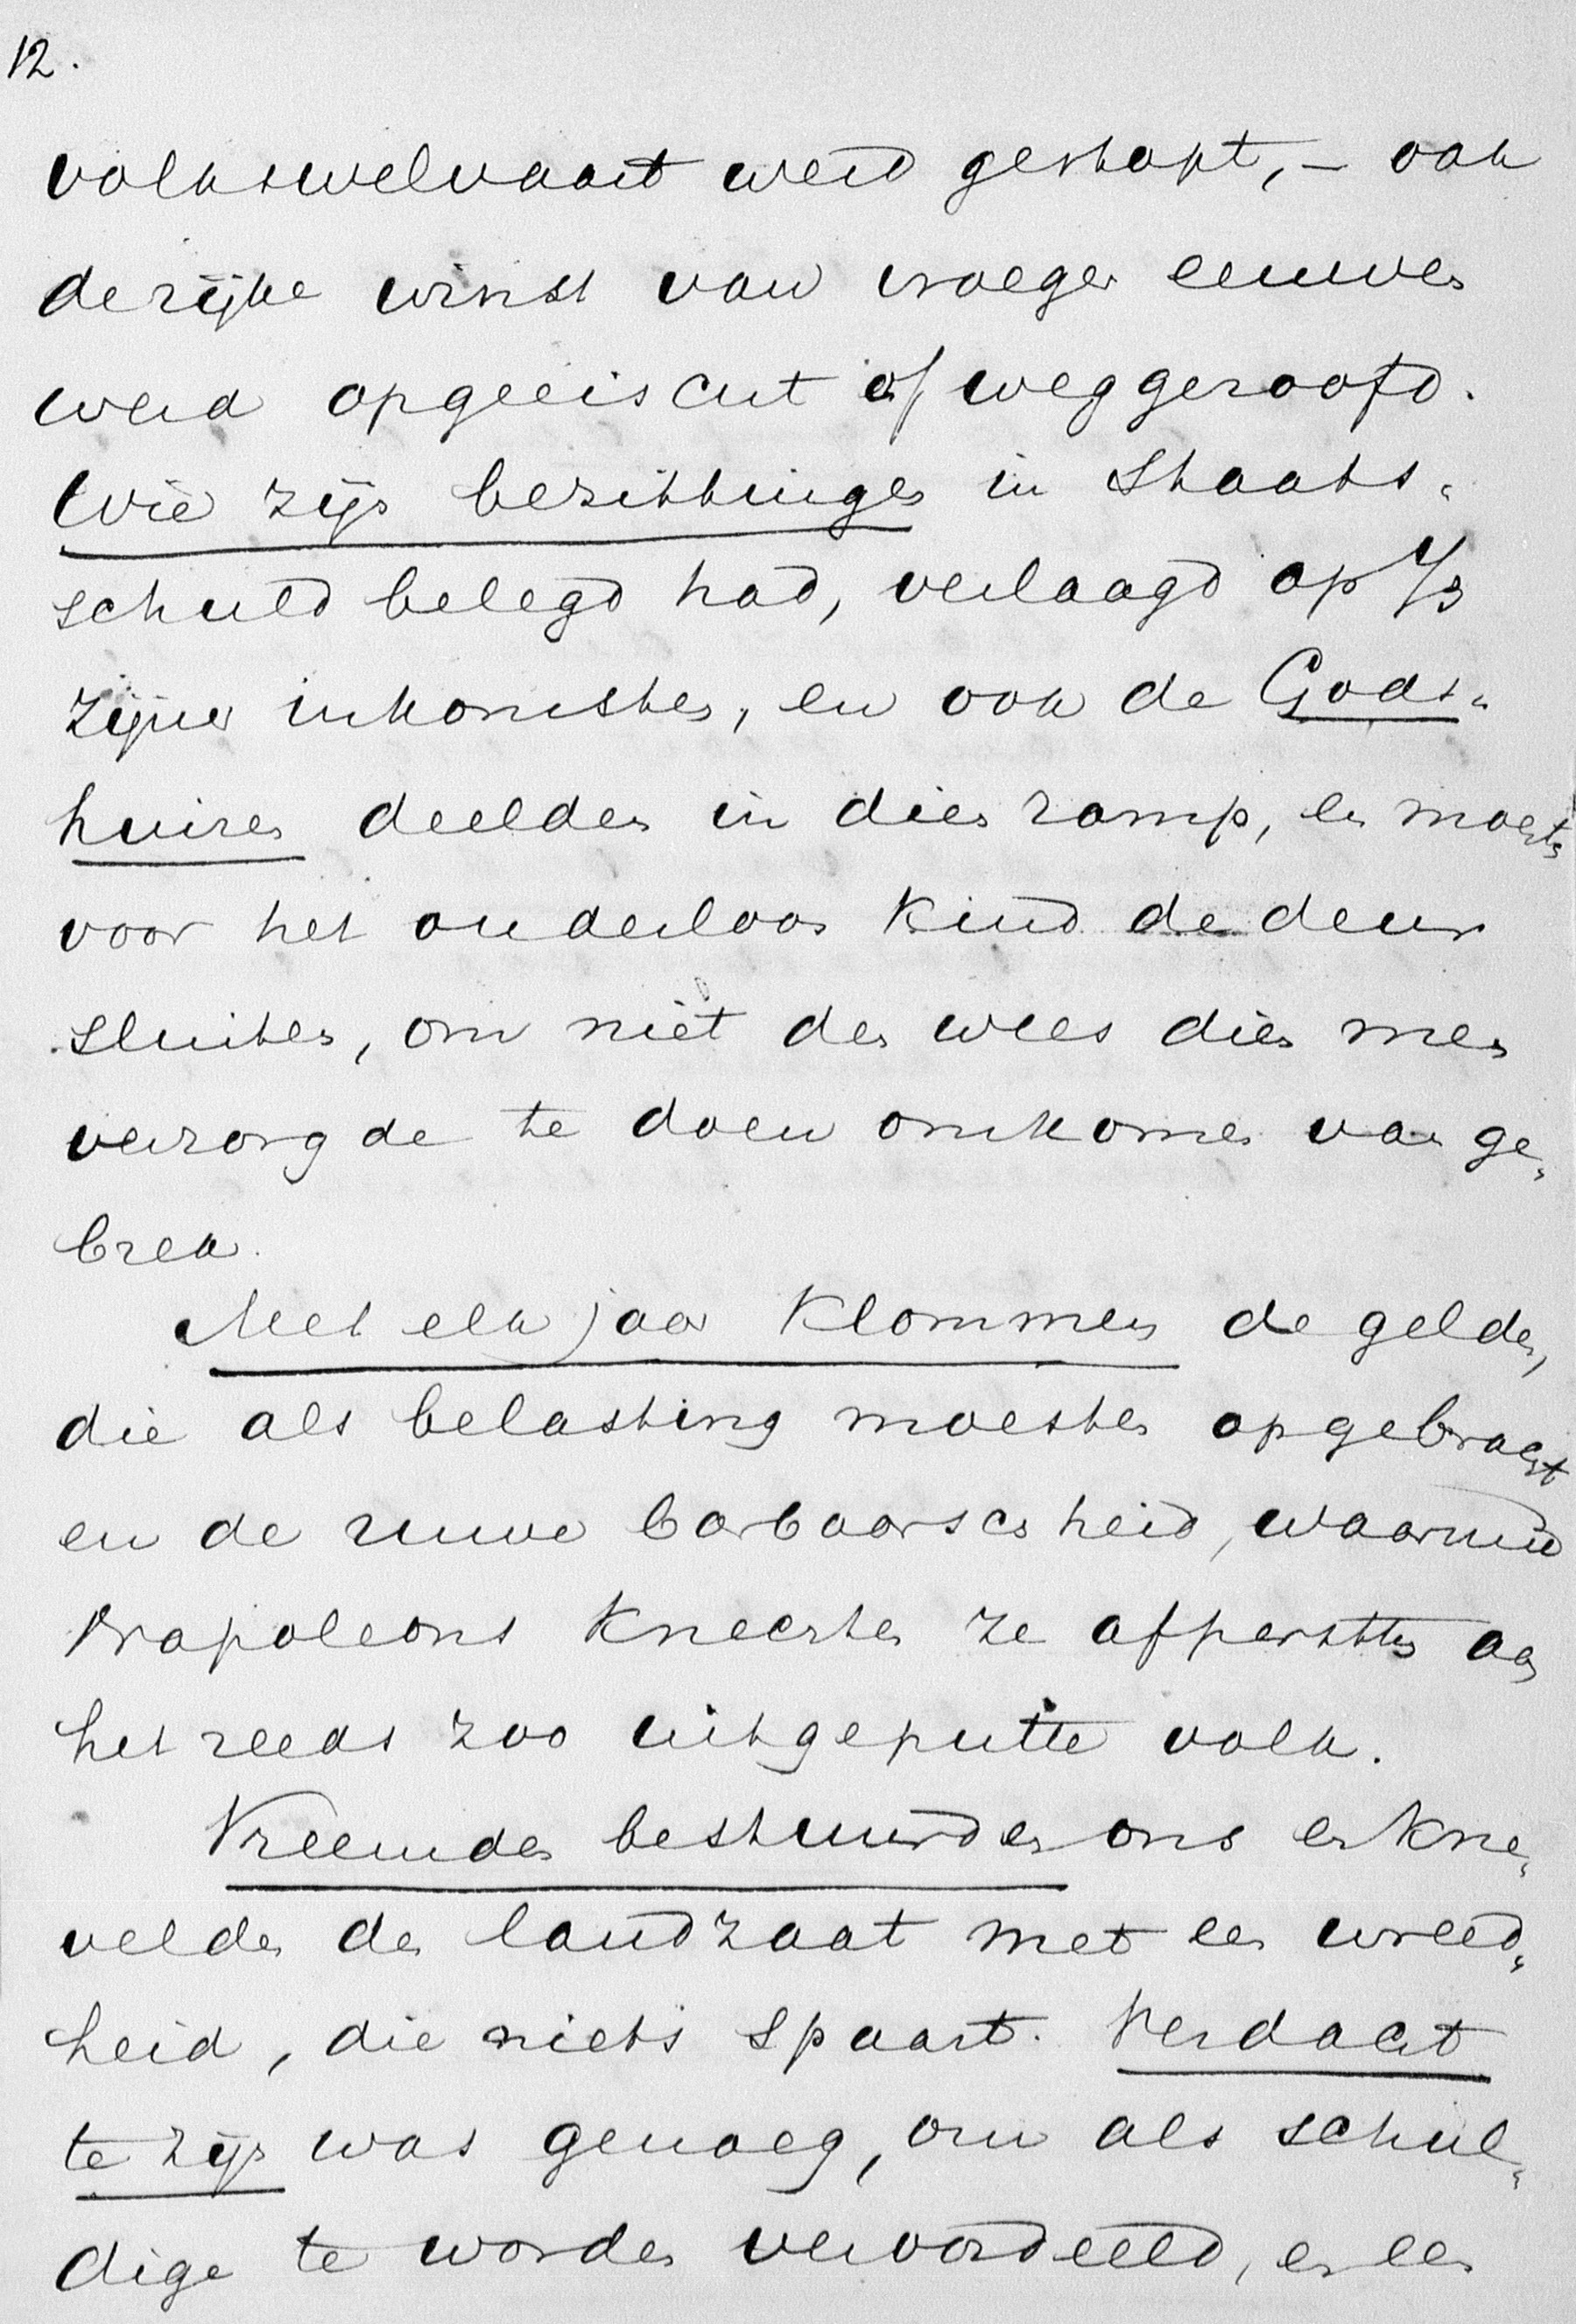 12.
volkswelvaart werd gestopt, – ook
de rijke winst van vroeger eeuwen
werd opgeëischt of weggeroofd.
Wie zijn bezittingen in Staats„
schuld belegd had, verlaagd op 1/3
zijner inkomsten, en ook de Gods„
huizen deelden in dien ramp, en moesten
voor het ouderloos kind de deur
sluiten, om niet den wees dien men
verzorgde te doen omkomen van ge„
brek.
Met elk jaar klommen de gelden,
die als belasting moesten opgebracht
en de ruwe barbaarschheid, waarmeê
Napoleons knechten ze afpersten aan
het reeds zoo uitgeputte volk.
Vreemden bestuurden ons en kne„
velden den landzaat met een wreed„
heid, die niets spaart. Verdacht
te zijn was genoeg, om als schul„
dige te worden veroordeeld, en een